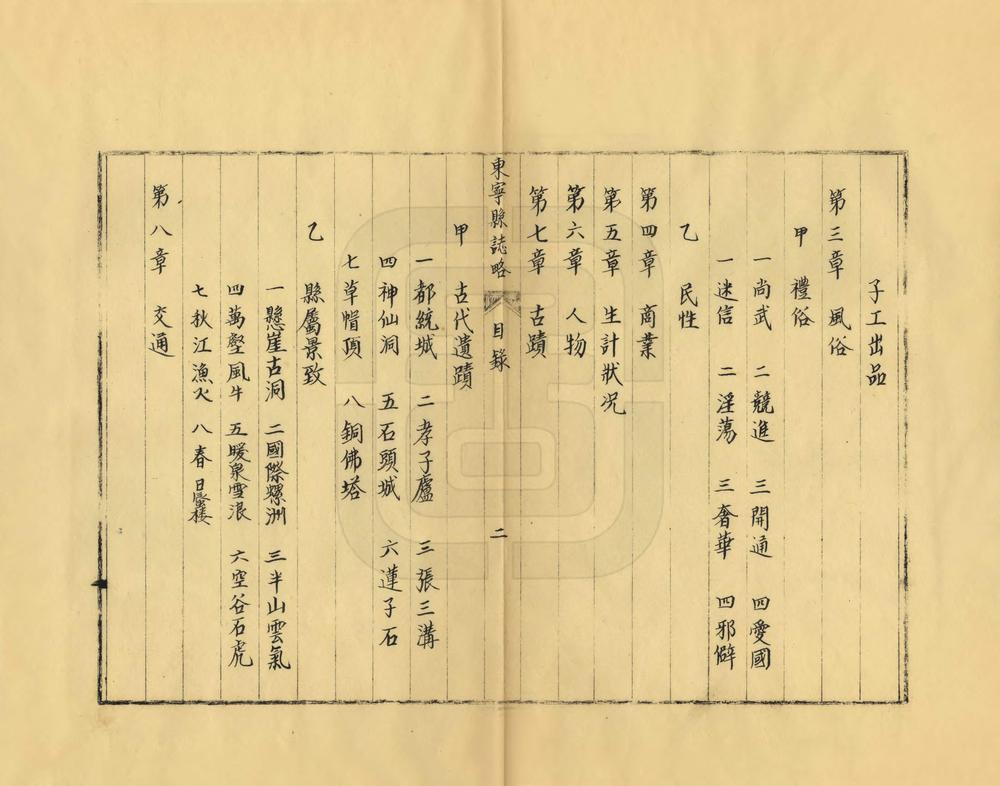 子工出品
第三章 風俗
甲 禮俗
一尚武 二競進 三開通 四愛國
一迷信 二淫蕩 三奢華 四邪僻
乙 民性
第四章 商業
第五章 生計狀况
第六章 人物
第七章 古蹟
東寧縣誌略 目錄 二
甲 古代遺蹟
一都統城 二孝子廬 三張三溝
四神仙洞 五石頭城 六蓮子石
七草帽頂 八銅佛塔
乙 縣屬景致
一懸崖古洞 二國際螺洲 三半山雲氣
四萬壑風牛 五暖泉雪浪 六空谷石虎
七秋江漁火 八春日蜃楼
第八章 交通